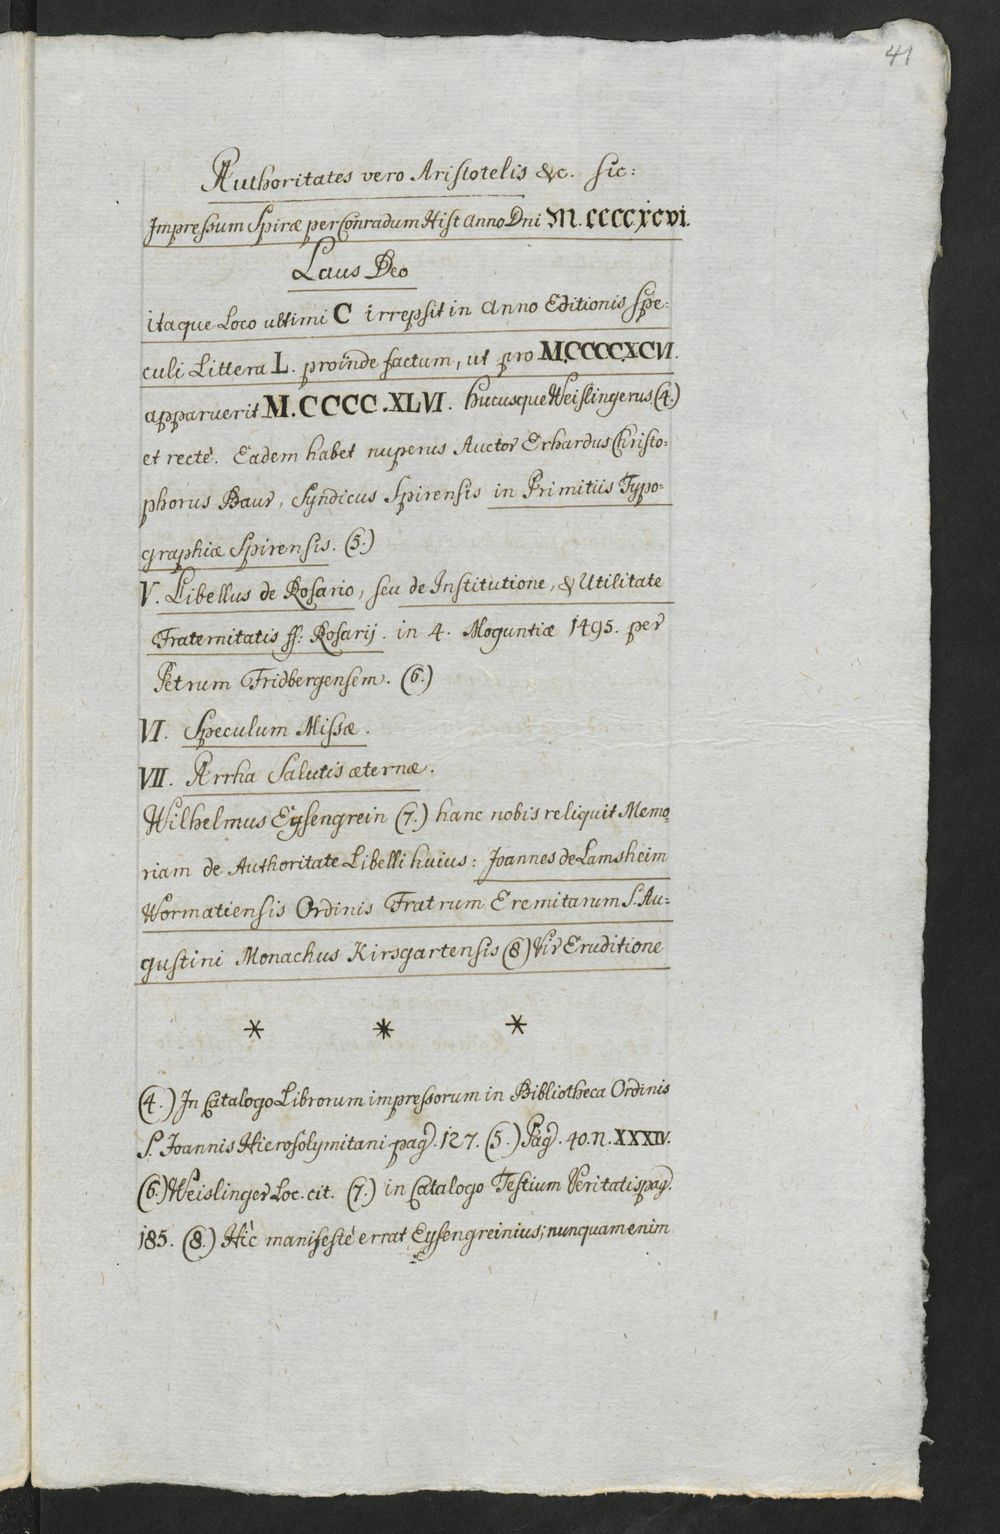 41
Authoritates vero Aristotelis &c. sic:
Impressum Spiræ per Conradum Hist Anno Dni M.CCCCXCVI.
Laus Deo
itaque Loco ultimi C irrepsit in Anno Editionis Spe:
culi Littera L. proinde factum, ut pro MCCCCXCVI.
apparuerit M.CCCC.XLVI. hucusque Weislingerus (4.)
et recté. Eadem habet nuperus Auctor Erhardus Christo:
phorus Baur, Syndicus Spirensis in Primitiis Typo:
graphiæ Spirensis. (5.)
V. Libellus de Rosario, seu de Institutione, & Utilitate
Fraternitatis ss: Rosarij. in 4. Moguntiæ 1495. per
Petrum Fridbergensem. (6.)
VI. Speculum Missæ.
VII. Arrha Salutis æternæ.
Wilhelmus Eysengrein (7.) hanc nobis reliquit Memo:
riam de Authoritate Libelli huius: Joannes de Lamsheim
Wormatiensis Ordinis Fratrum Eremitarum S. Au:
gustini Monachus Kirsgartensis (8) Vir Eruditione
* * *
(4.) In Catalogo Librorum impressorum in Bibliotheca Ordinis
S. Joannis Hierosolymitani pag. 127. (5.) Pag. 40. n. XXXIV.
(6.) Weislinger Loc. cit. (7.) in Catalogo Testium Veritatis pag.
185. (8.) Hic manifesté errat Eysengreinius; nunquam enim